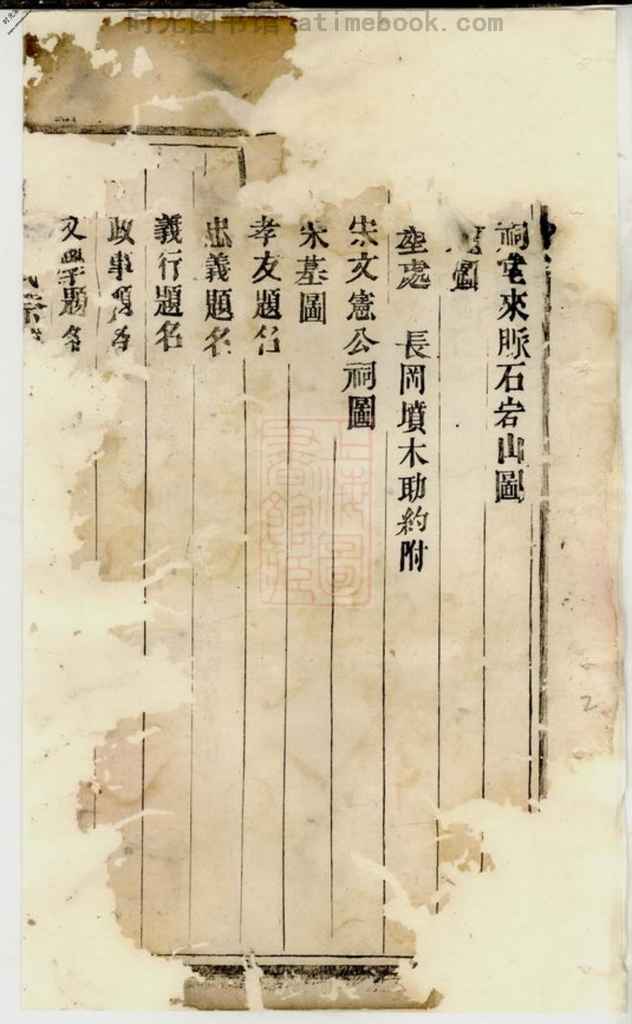 时光图书馆 atimebook.com
祠堂來脈石岩山圖
圖
塋處 長岡墳木助約附
宋文憲公祠圖
宋基圖
孝友題名
忠義題名
義行題名
政事題名
文學題名
氏宗
上海圖書館藏
2